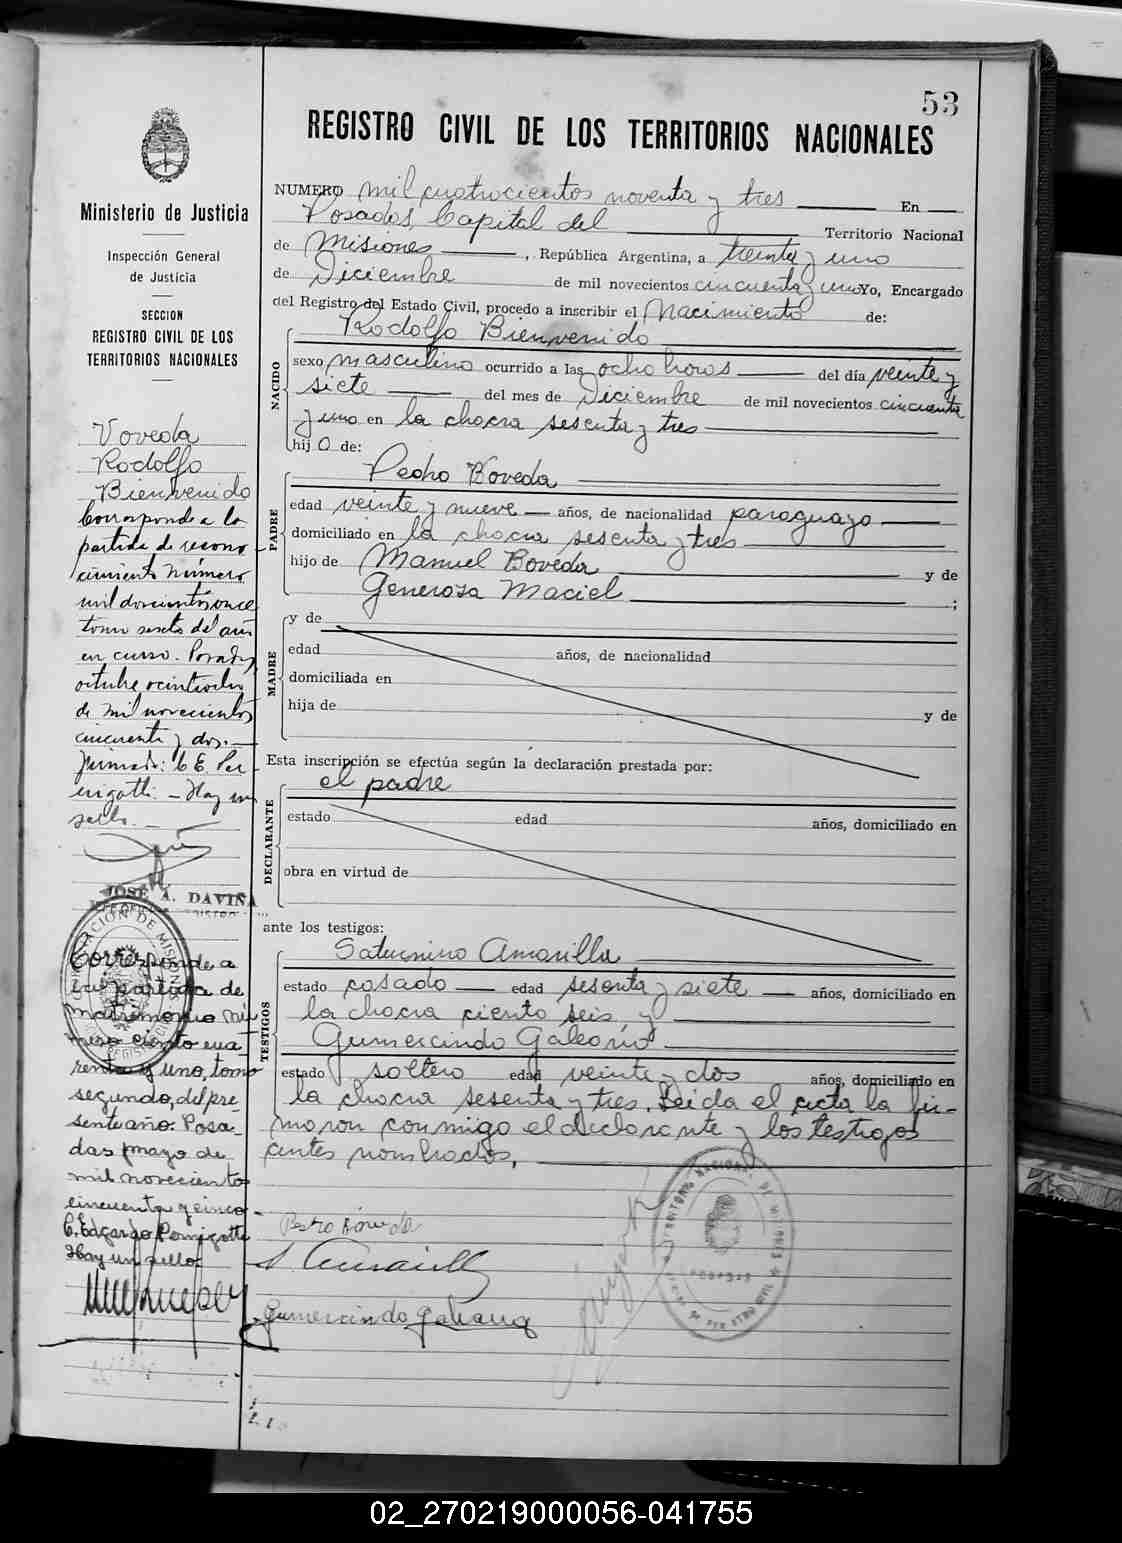 53
REGISTRO CIVIL DE LOS TERRITORIOS NACIONALES
NUMERO mil cuatrocientos noventa y tres En
Posadas, Capital del Territorio Nacional
de Misiones, República Argentina, a treinta y uno
de Diciembre de mil novecientos cincuenta y uno Yo, Encargado
del Registro del Estado Civil, procedo a inscribir el Nacimiento de:
NACIDO
Rodolfo Bienvenido
sexo masculino ocurrido a las ocho horas del día veinte y
siete del mes de Diciembre de mil novecientos cincuenta
y uno en la chacra sesenta y tres
hij o de:
PADRE
Pedro Boveda
edad veinte y nueve años, de nacionalidad paraguayo
domiciliado en la chacra sesenta y tres
hijo de Manuel Boveda y de
Generosa Maciel ;
MADRE
y de
edad años, de nacionalidad
domiciliada en
hija de y de
Esta inscripción se efectúa según la declaración prestada por:
el padre
DECLARANTE
estado edad años, domiciliado en
obra en virtud de
ante los testigos:
TESTIGOS
Saturnino Amarilla
estado casado edad sesenta y siete años, domiciliado en
la chacra ciento seis y
Gumercindo Galeano
estado soltero edad veinte y dos años, domiciliado en
la chacra sesenta y tres. Leida el acta la fir-
maron conmigo el declarante y los testigos
antes nombrados.
Pedro Boveda
S. Amarilla
Gumercindo Galeano
Ministerio de Justicia
Inspección General
de Justicia
SECCION
REGISTRO CIVIL DE LOS
TERRITORIOS NACIONALES
Voveda
Rodolfo
Bienvenido
Corresponde a la
partida de recono
cimiento número
mil doscientos once
tomo sexto del año
en curso. Posadas
octubre veintiocho
de mil novecientos
cincuenta y dos.
firmado: C E. Per
ugotti. - Hay un
sello.
JOSÉ A. DAVIÑA
Corresponde a
la partida de
matrimonio nú
mero ciento cua
renta y uno, tomo
segundo, del pre-
sente año. Posa-
das mayo de
mil novecientos
cincuenta y cinco
C. Edgardo
Hay un sello
02_270219000056-041755